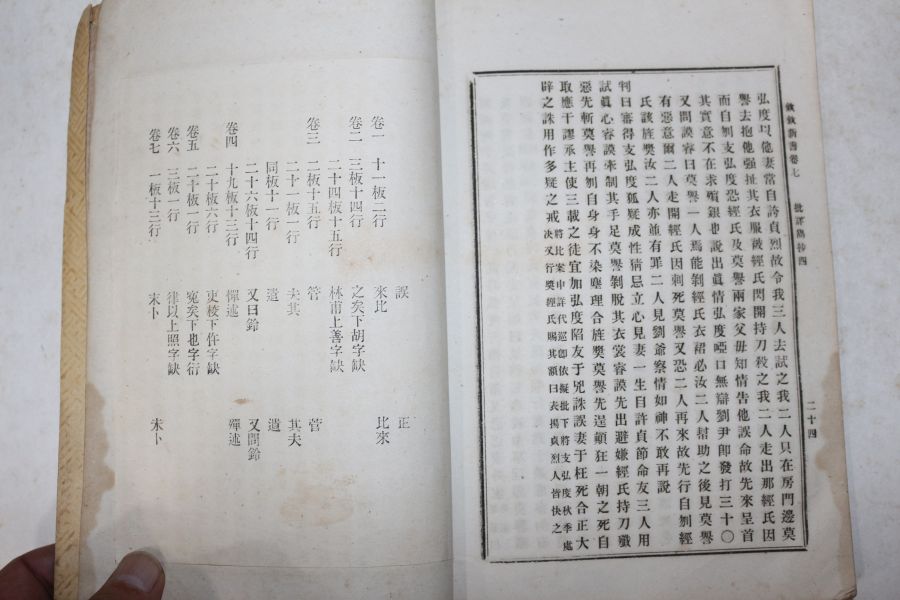 欽欽新書卷七 批詳雋抄四 二十四
弘度以他妻常自誇貞烈故令我三人去試之我二人只在房門邊莫
譽去抱他强扯其衣服被經氏閃開持刀殺之我二人走出那經氏因
而自刎支弘度恐經氏及莫譽兩家父母知情告他誤命故先來呈首
其實意不在求殯銀也說出眞情弘度啞口無辯劉尹卽發打三十〇
又問謨睿曰莫譽一人焉能剝經氏衣裙必汝二人幇助之後見莫譽
有惡意爾二人走開經氏因刺死莫譽又恐二人再來故先行自刎經
氏該旌奬汝二人亦並有罪二人見劉爺察情如神不敢再說
判曰審得支弘度狐疑成性猜忌立心見妻一生自許貞節命友三人用
試眞心睿謨牽制其手足莫譽剝脫其衣裳睿謨先出避嫌經氏持刀戮
惡先斬莫譽再刎自身身不染塵理合旌奬莫譽先逞顚狂一朝之死自
取應干謬承主使三載之徒宜加弘度陷友于兇誅誤妻于枉死合正大
辟之誅用作多疑之戒 將比案申詳代巡卽依擬批下將支弘度秋季處
決又行奬經氏賜其額曰表揚貞烈人皆快之
誤 正
卷一 十一板二行 來比 比來
卷二 三板十四行 之矣下胡字缺
二十四板十五行 林甫上善字缺
卷三 二板十五行 管 菅
二十一板一行 夫其 其夫
同板十一行 遣 遺
二十六板十四行 又曰鈴 又問鈴
卷四 十九板十三行 憚述 殫述
二十板六行 吏校下作字缺
卷五 二十板一行 寃矣下也字衍
卷六 三板一行 律以上照字缺
卷七 一板十三行 末卜 未卜